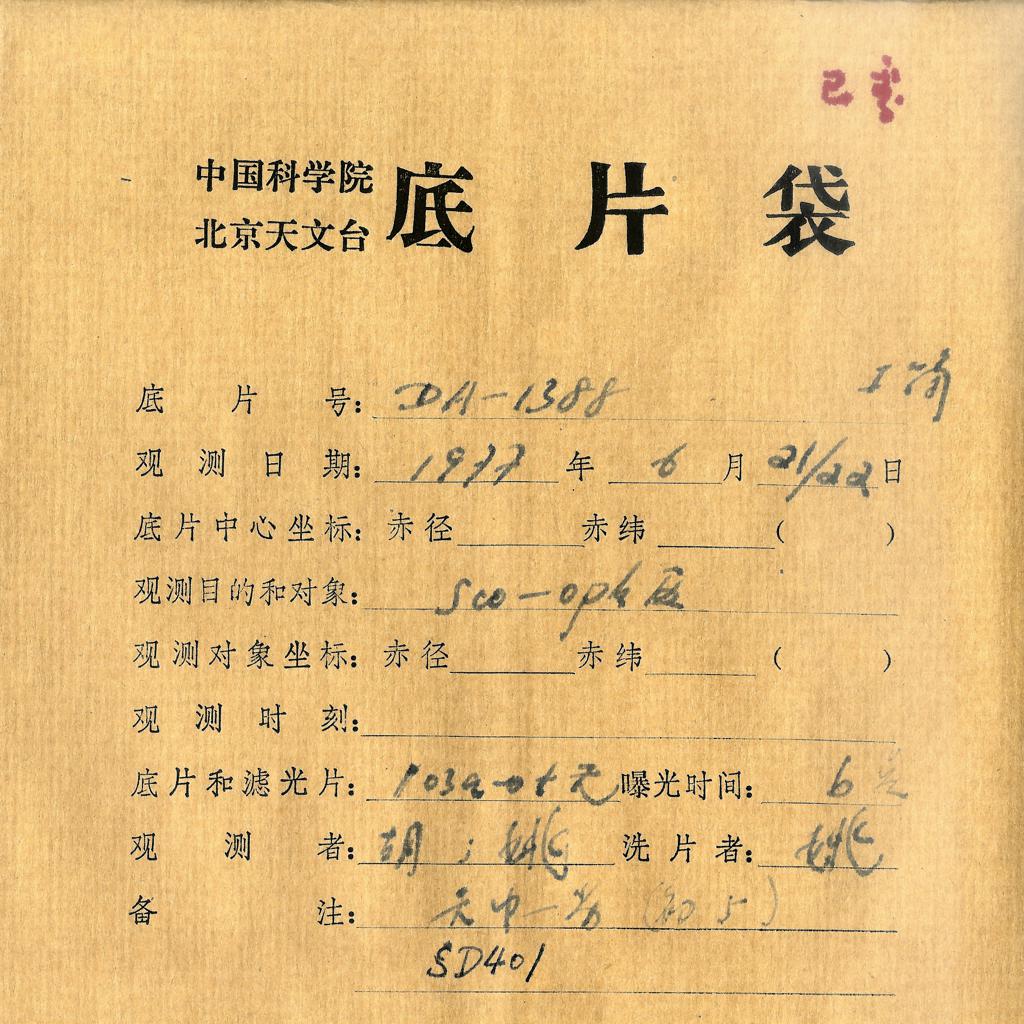 已
中国科学院
北京天文台
底片袋
底片号: DA-1388
观测日期: 1977年6月21/22日
底片中心坐标: 赤径 赤纬 ( )
观测目的和对象: Sco-oph
观测对象坐标: 赤径 赤纬 ( )
观测时刻:
底片和滤光片: 103a-o+无 曝光时间: 6
观测者: 胡;姚 洗片者: 姚
备注:
SD401